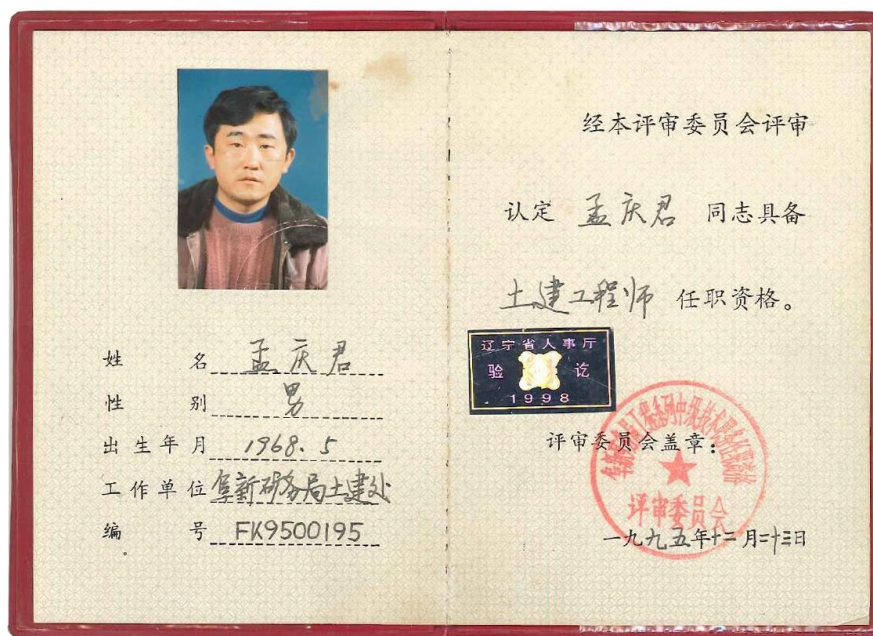 姓名 孟庆君
性别 男
出生年月 1968.5
工作单位 阜新矿务局土建处
编号 FK9500195
经本评审委员会评审
认定 孟庆君 同志具备
土建工程师 任职资格。
辽宁省人事厅
验讫
1998
评审委员会盖章:
评审委员会
一九九五年十二月二十三日